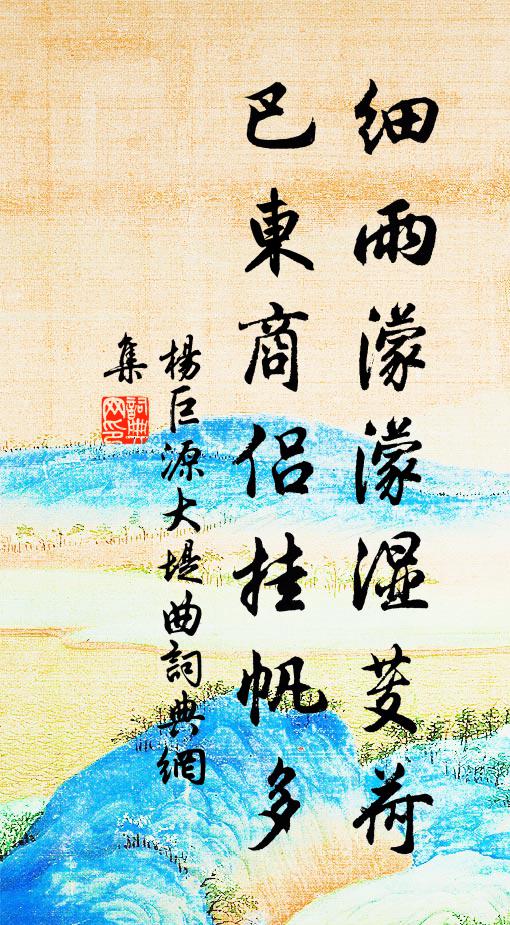 細雨濛濛湿芰荷
巴東商侣挂帆多
楊巨源大堤曲詞典網
集
詞典網印